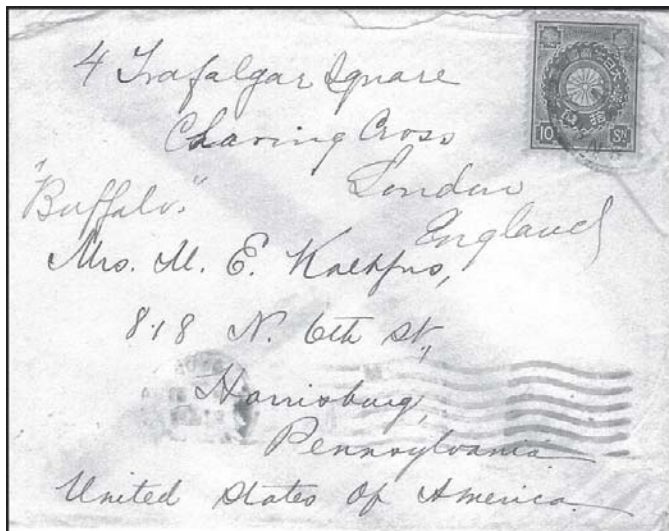 4 Trafalgar Square
Charing Cross
London
England
"Buffalo"
Mrs. M. E.
818 N. 6th St.,
Harrisburg,
Pennsylvania
United States of America.
10 Sn